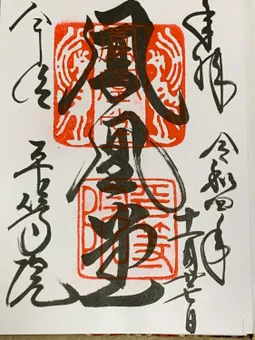 奉拝
令和四年
十一月廿七日
鳳凰堂
宇治
平等院